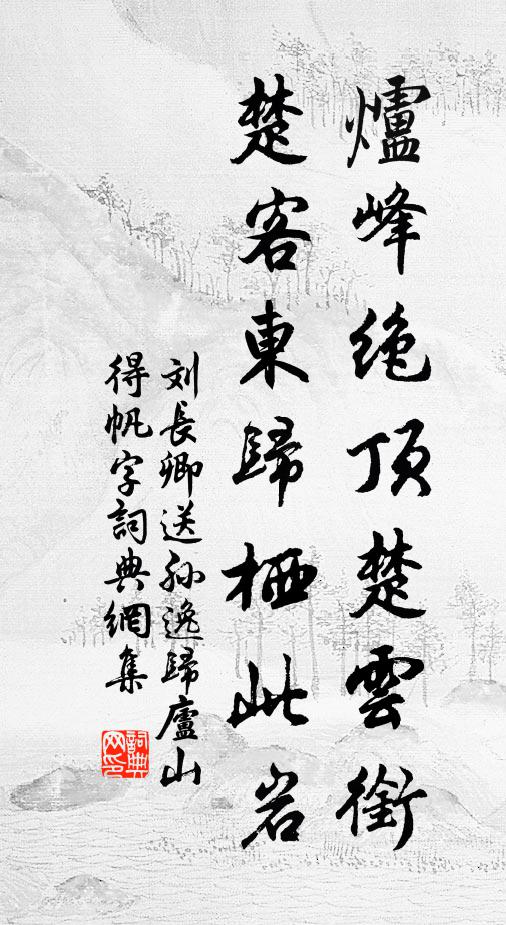 爐峰绝顶楚雲銜
楚客東歸栖此岩
刘長卿送孙逸歸廬山
得帆字詞典網集
詞典网印